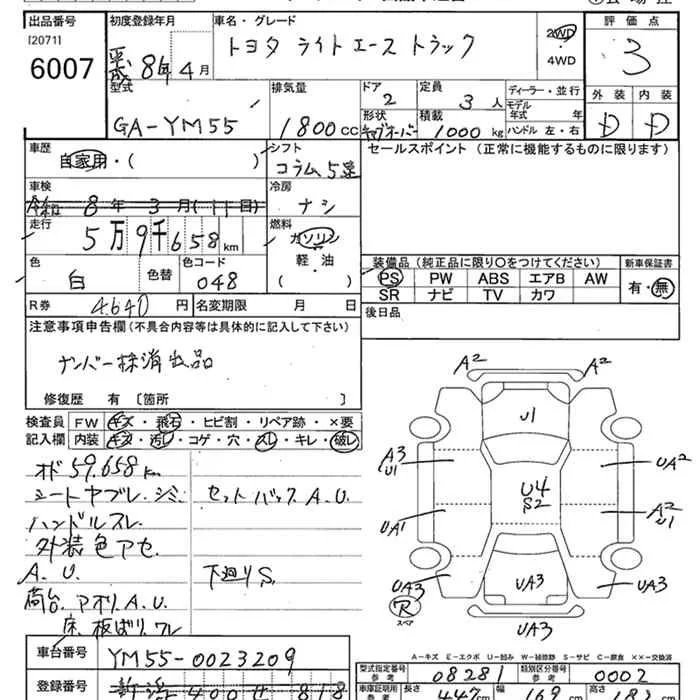 出品番号 初度登録年月 車名・グレード 評価点
[2071]
6007
平成 8年 4月
トヨタ ライトエース トラック
2WD
・
4WD
3
型式 排気量 ドア 定員 ディーラー・並行 外装 内装
2 3人 モデル
年式 年
GA-YM55 1800cc 形状 積載 ハンドル 左・右 D D
キャブオーバー 1000kg
車歴 シフト セールスポイント (正常に機能するものに限ります)
自家用・( ) コラム5速
車検 冷房
8年 3月(11日) ナシ
走行 燃料
5万9千658km ガソリン
軽・油
( )
色 色替 色コード
白 048
装備品(純正品に限り○をつけてください) 新車保証書
PS PW ABS エアB AW 有・無
SR ナビ TV カワ
R券 4,640円 名変期限 月 日 後日品
注意事項申告欄(不具合内容等は具体的に記入して下さい)
ナンバー抹消出品
修復歴 有 〔箇所 〕
検査員 FW キズ・飛石・ヒビ割・リペア跡・×要
記入欄 内装 キズ・汚レ・コゲ・穴・スレ・キレ・破レ
オド59,658km
シートヤブレ、シミ、 セットバックA.U.
ハンドルスレ.
外装色アセ.
A.U. 下廻りS.
荷台.アオリA.U.
床板ばりワレ
A2 A2
U1
A3 U1 UA2
U4
S2
A2 U1
UA1
UA3 UA3 UA3
R
スペア
UA3
A-キズ E-エクボ U-凹み W-補修跡 S-サビ C-腐食 ××-交換済
車台番号 YM55-0023209
型式指定番号 参考 08281 類別区分番号 参考 0002
登録番号 400 818
車庫証明用 参考 長さ 447cm 幅 169cm 高さ